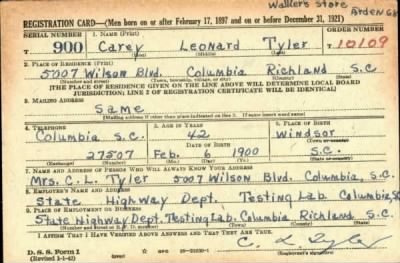 Walker's Store
REGISTRATION CARD—(Men born on or after February 17, 1897 and on or before December 31, 1921)
SERIAL NUMBER 1. NAME (Print) ORDER NUMBER
T 900 Carey Leonard Tyler T 10109
(First) (Middle) (Last)
2. PLACE OF RESIDENCE (Print)
5007 Wilson Blvd. Columbia Richland S.C
(Number and street) (Town, township, village, or city) (County) (State)
[THE PLACE OF RESIDENCE GIVEN ON THE LINE ABOVE WILL DETERMINE LOCAL BOARD
JURISDICTION; LINE 2 OF REGISTRATION CERTIFICATE WILL BE IDENTICAL]
3. MAILING ADDRESS
Same
[Mailing address if other than place indicated on line 2. If same insert word same]
4. TELEPHONE 5. AGE IN YEARS 6. PLACE OF BIRTH
Columbia S.C. 42 Windsor
DATE OF BIRTH
27507 Feb. 6 1900 S.C.
(Exchange) (Number) (Mo.) (Day) (Yr.) (State or country)
7. NAME AND ADDRESS OF PERSON WHO WILL ALWAYS KNOW YOUR ADDRESS
Mrs. C. L. Tyler 5007 Wilson Blvd. Columbia, S.C.
8. EMPLOYER'S NAME AND ADDRESS
State Highway Dept. Testing Lab. Columbia, S.C.
9. PLACE OF EMPLOYMENT OR BUSINESS
State Highway Dept. Testing Lab. Columbia Richland S.C.
(Number and street or R. F. D. number) (Town) (County) (State)
I AFFIRM THAT I HAVE VERIFIED ABOVE ANSWERS AND THAT THEY ARE TRUE.
D. S. S. Form 1
(Revised 1-1-42) (over)
C. L. Tyler
(Registrant's signature)